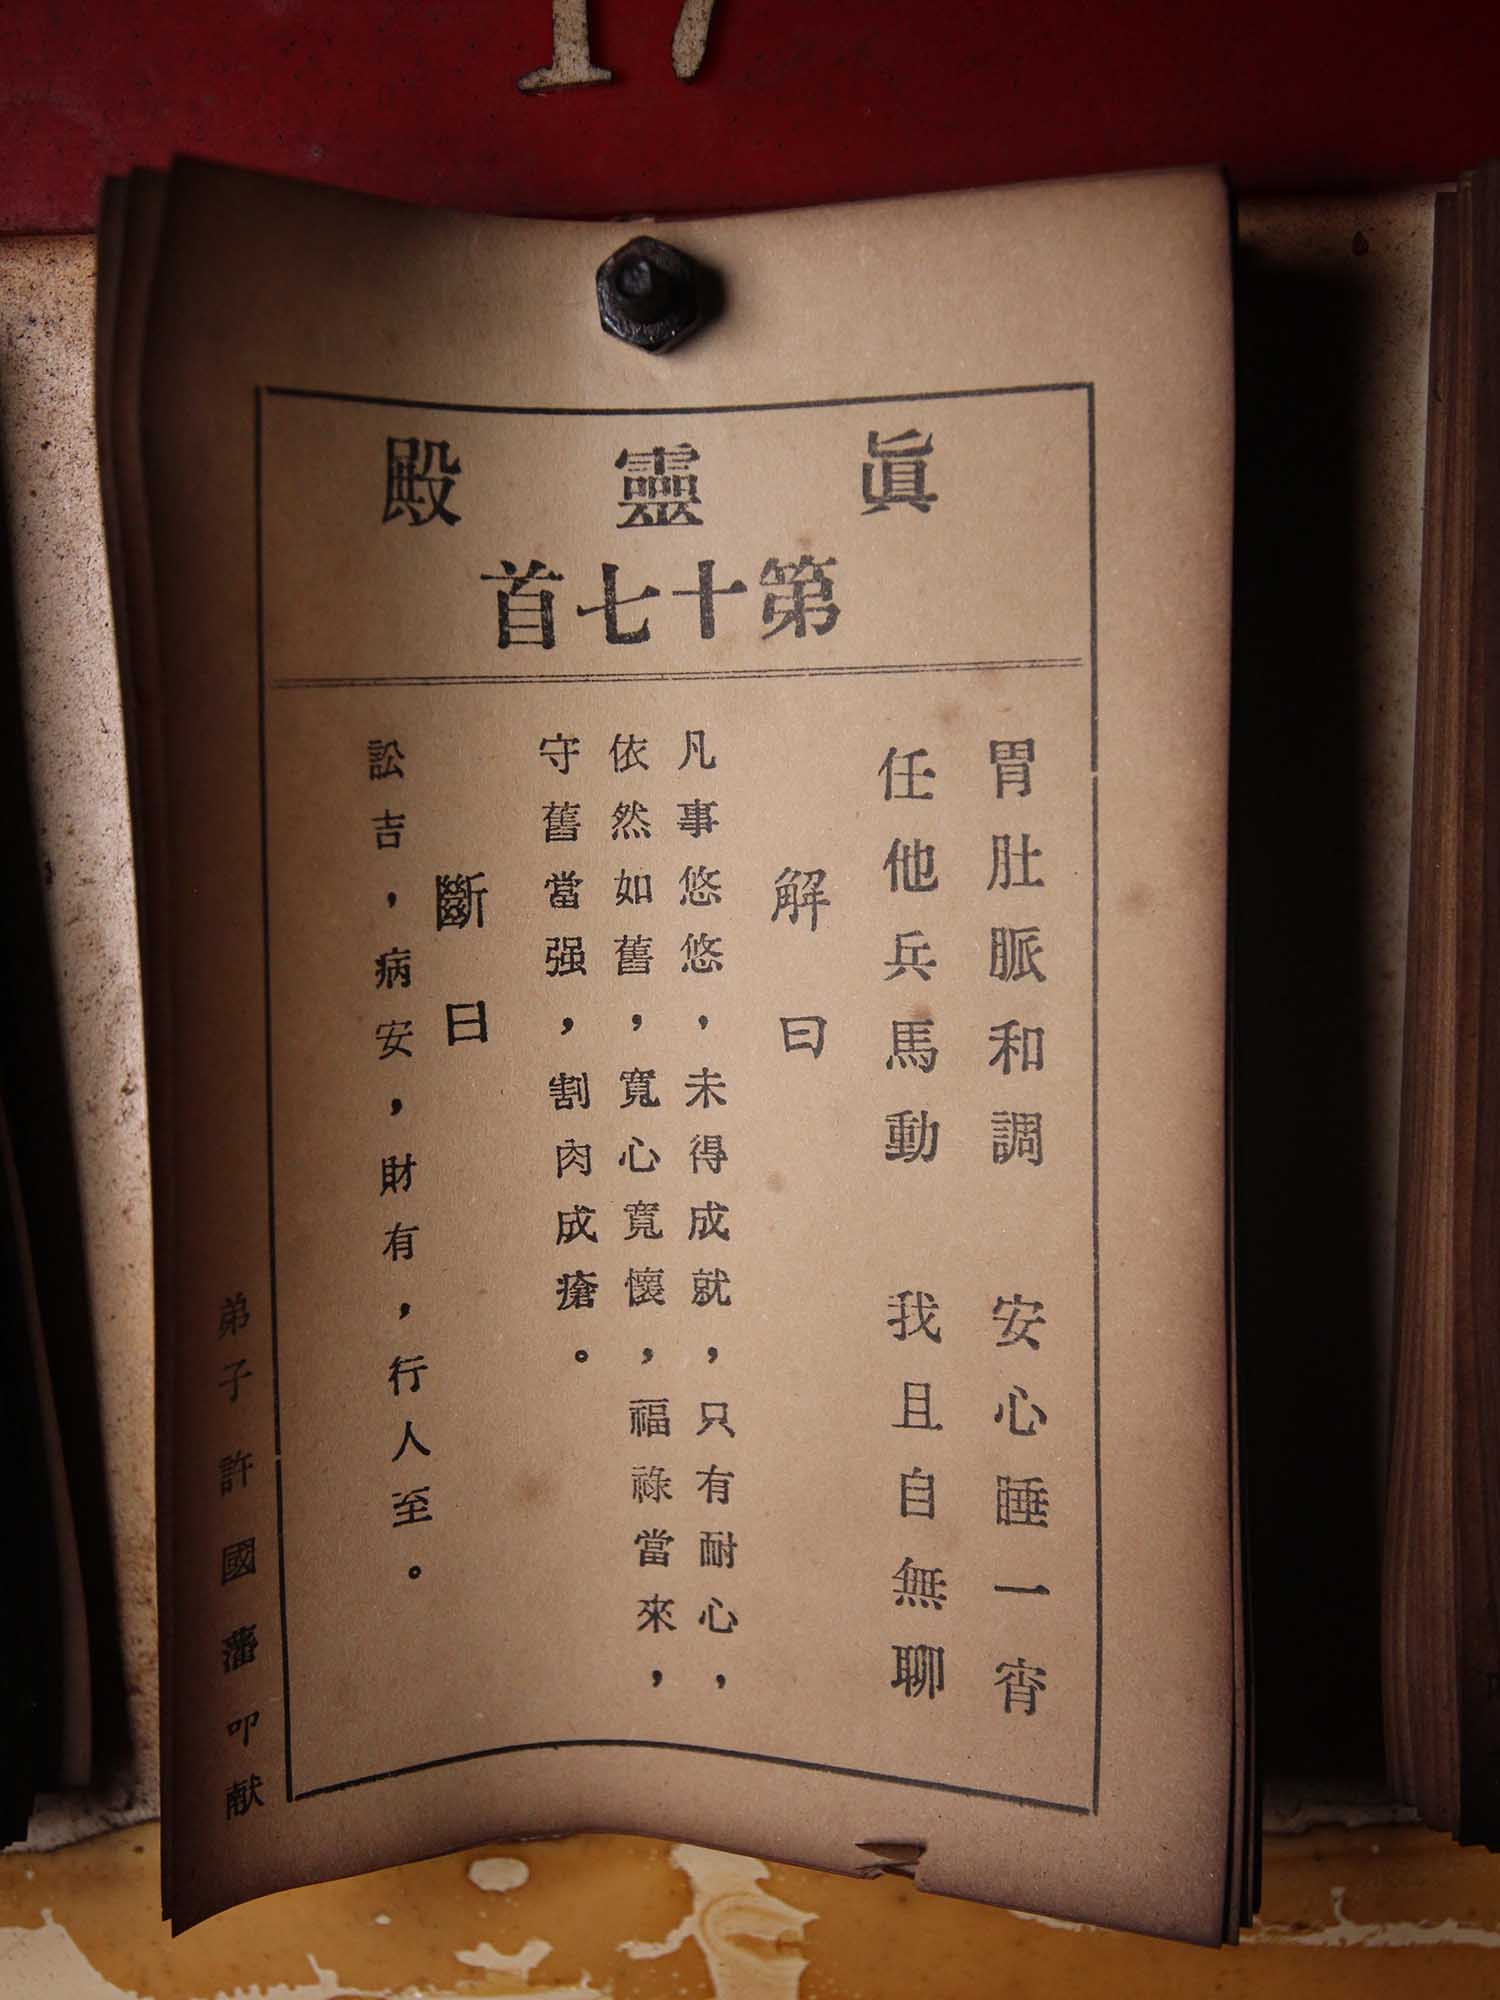 17
眞靈殿
第十七首
胃肚脈和調　安心睡一宵
任他兵馬動　我且自無聊
解曰
凡事悠悠，未得成就，只有耐心，
依然如舊，寬心寬懷，福祿當來，
守舊當强，割肉成瘡。
斷曰
訟吉，病安，財有，行人至。
弟子許國藩叩献